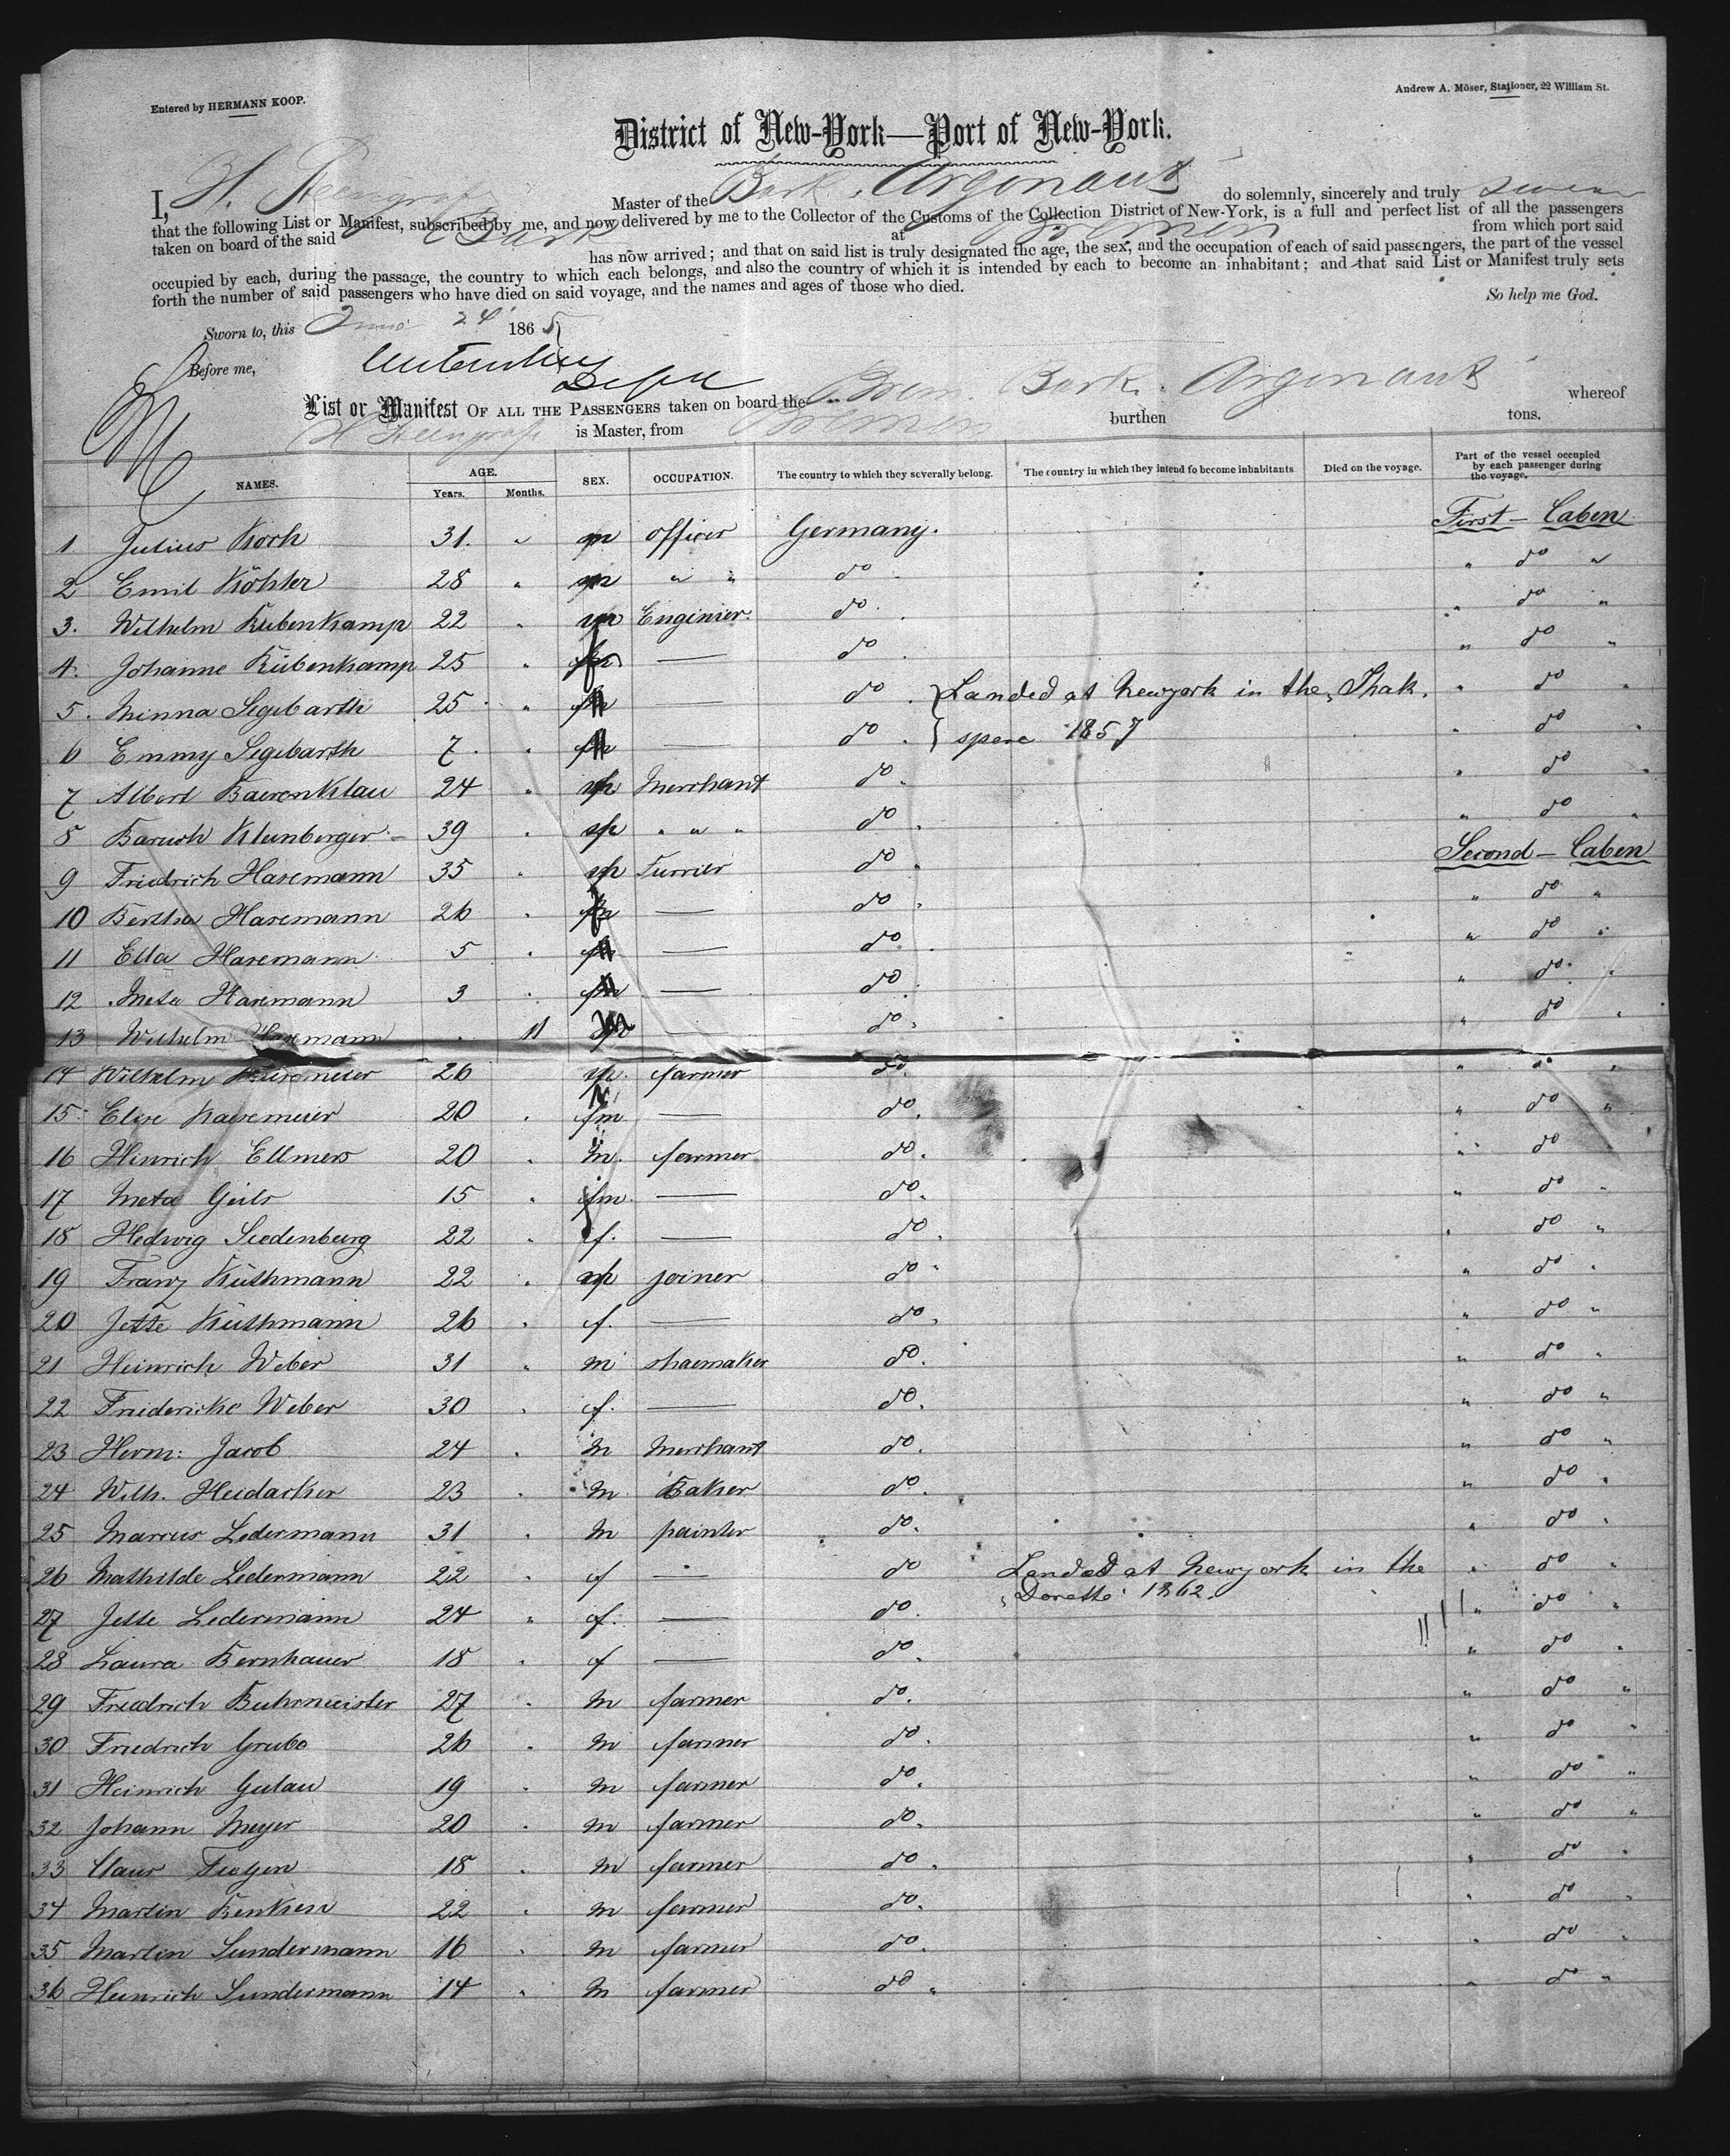 Entered by HERMANN KOOP.
Andrew A. Möser, Stationer, 22 William St.
District of New-York—Port of New-York.
I, H. Steengrafe Master of the Bark Argonaut do solemnly, sincerely and truly swear
that the following List or Manifest, subscribed by me, and now delivered by me to the Collector of the Customs of the Collection District of New-York, is a full and perfect list of all the passengers
taken on board of the said Bark at Bremen from which port said
has now arrived; and that on said list is truly designated the age, the sex, and the occupation of each of said passengers, the part of the vessel
occupied by each, during the passage, the country to which each belongs, and also the country of which it is intended by each to become an inhabitant; and that said List or Manifest truly sets
forth the number of said passengers who have died on said voyage, and the names and ages of those who died.
So help me God.
Sworn to, this June 24 1865
Before me,
List or Manifest OF ALL THE PASSENGERS taken on board the Brem. Bark Argonaut whereof
H Steengrafe is Master, from Bremen burthen tons.
NAMES. AGE. Years. Months. SEX. OCCUPATION. The country to which they severally belong. The country in which they intend to become inhabitants Died on the voyage. Part of the vessel occupied by each passenger during the voyage.
1 Julius Koch 31. " m officer Germany. First - Caben
2 Emil Köhler 28 " m " " do " do "
3. Wilhelm Rübenkamp 22 " m Enginier. do. " do "
4. Johanne Rübenkamp 25 " f — do " do "
5. Minna Segebarth 25 " f — do. } Landed at Newyork in the „Shak. " do "
6 Emmy Segebarth 7. " f — do. } spere 1857 " do "
7 Albert Baerenklau 24 " m Merchant do. " do "
8 Baruch Kleinberger 39 " m " " " do. " do "
9 Friedrich Hasemann 35 " m Furrier do. Second - Caben
10 Bertha Hasemann 26 " f — do. " do "
11 Ella Hasemann 5 " f — do. " do "
12 Meta Hasemann 3 " f — do. " do "
13 Wilhelm Hasemann " 11 m — do. " do "
14 Wilhelm 26 m. farmer do. " do "
15. Elise 20 " fm — do. " do "
16 Hinrich Ellmers 20 " m. farmer do. " do
17 Meta Geils 15 " fm. — do. " do "
18 Hedwig Siedenburg 22 " f. — do. " do "
19 Franz Küthmann 22 " m joiner do " " do "
20 Jette Küthmann 26 " f. — do. " do "
21 Heinrich Weber 31 " m shaemaker do. " do "
22 Friedericke Weber 30 " f. — do. " do "
23 Herm: Jacob 24 " m Merchant do. " do "
24 Wilh. Heidacker 23 " m Baker do. " do "
25 Marcus Ledermann 31 " m painter do. " do "
26 Mathilde Ledermann 22 " f — do Landed at Newyork in the " do "
„Dorette" 1862.
27 Jette Ledermann 24 " f. — do. " do "
28 Laura Bernhauer 18 " f — do. " do "
29 Friedrich Buhrmeister 27 " m farmer do. " do "
30 Friedrich Grube 26 " m farmer do. " do "
31 Heinrich Gulau 19 " m farmer do. " do "
32 Johann Meyer 20 " m farmer do. " do "
33 Claus 18 " m farmer do. " do "
34 Martin Renken 22 " m farmer do. " do "
35 Martin Sundermann 16 " m farmer do. " do "
36 Heinrich Sundermann 14 " m farmer do " " do "